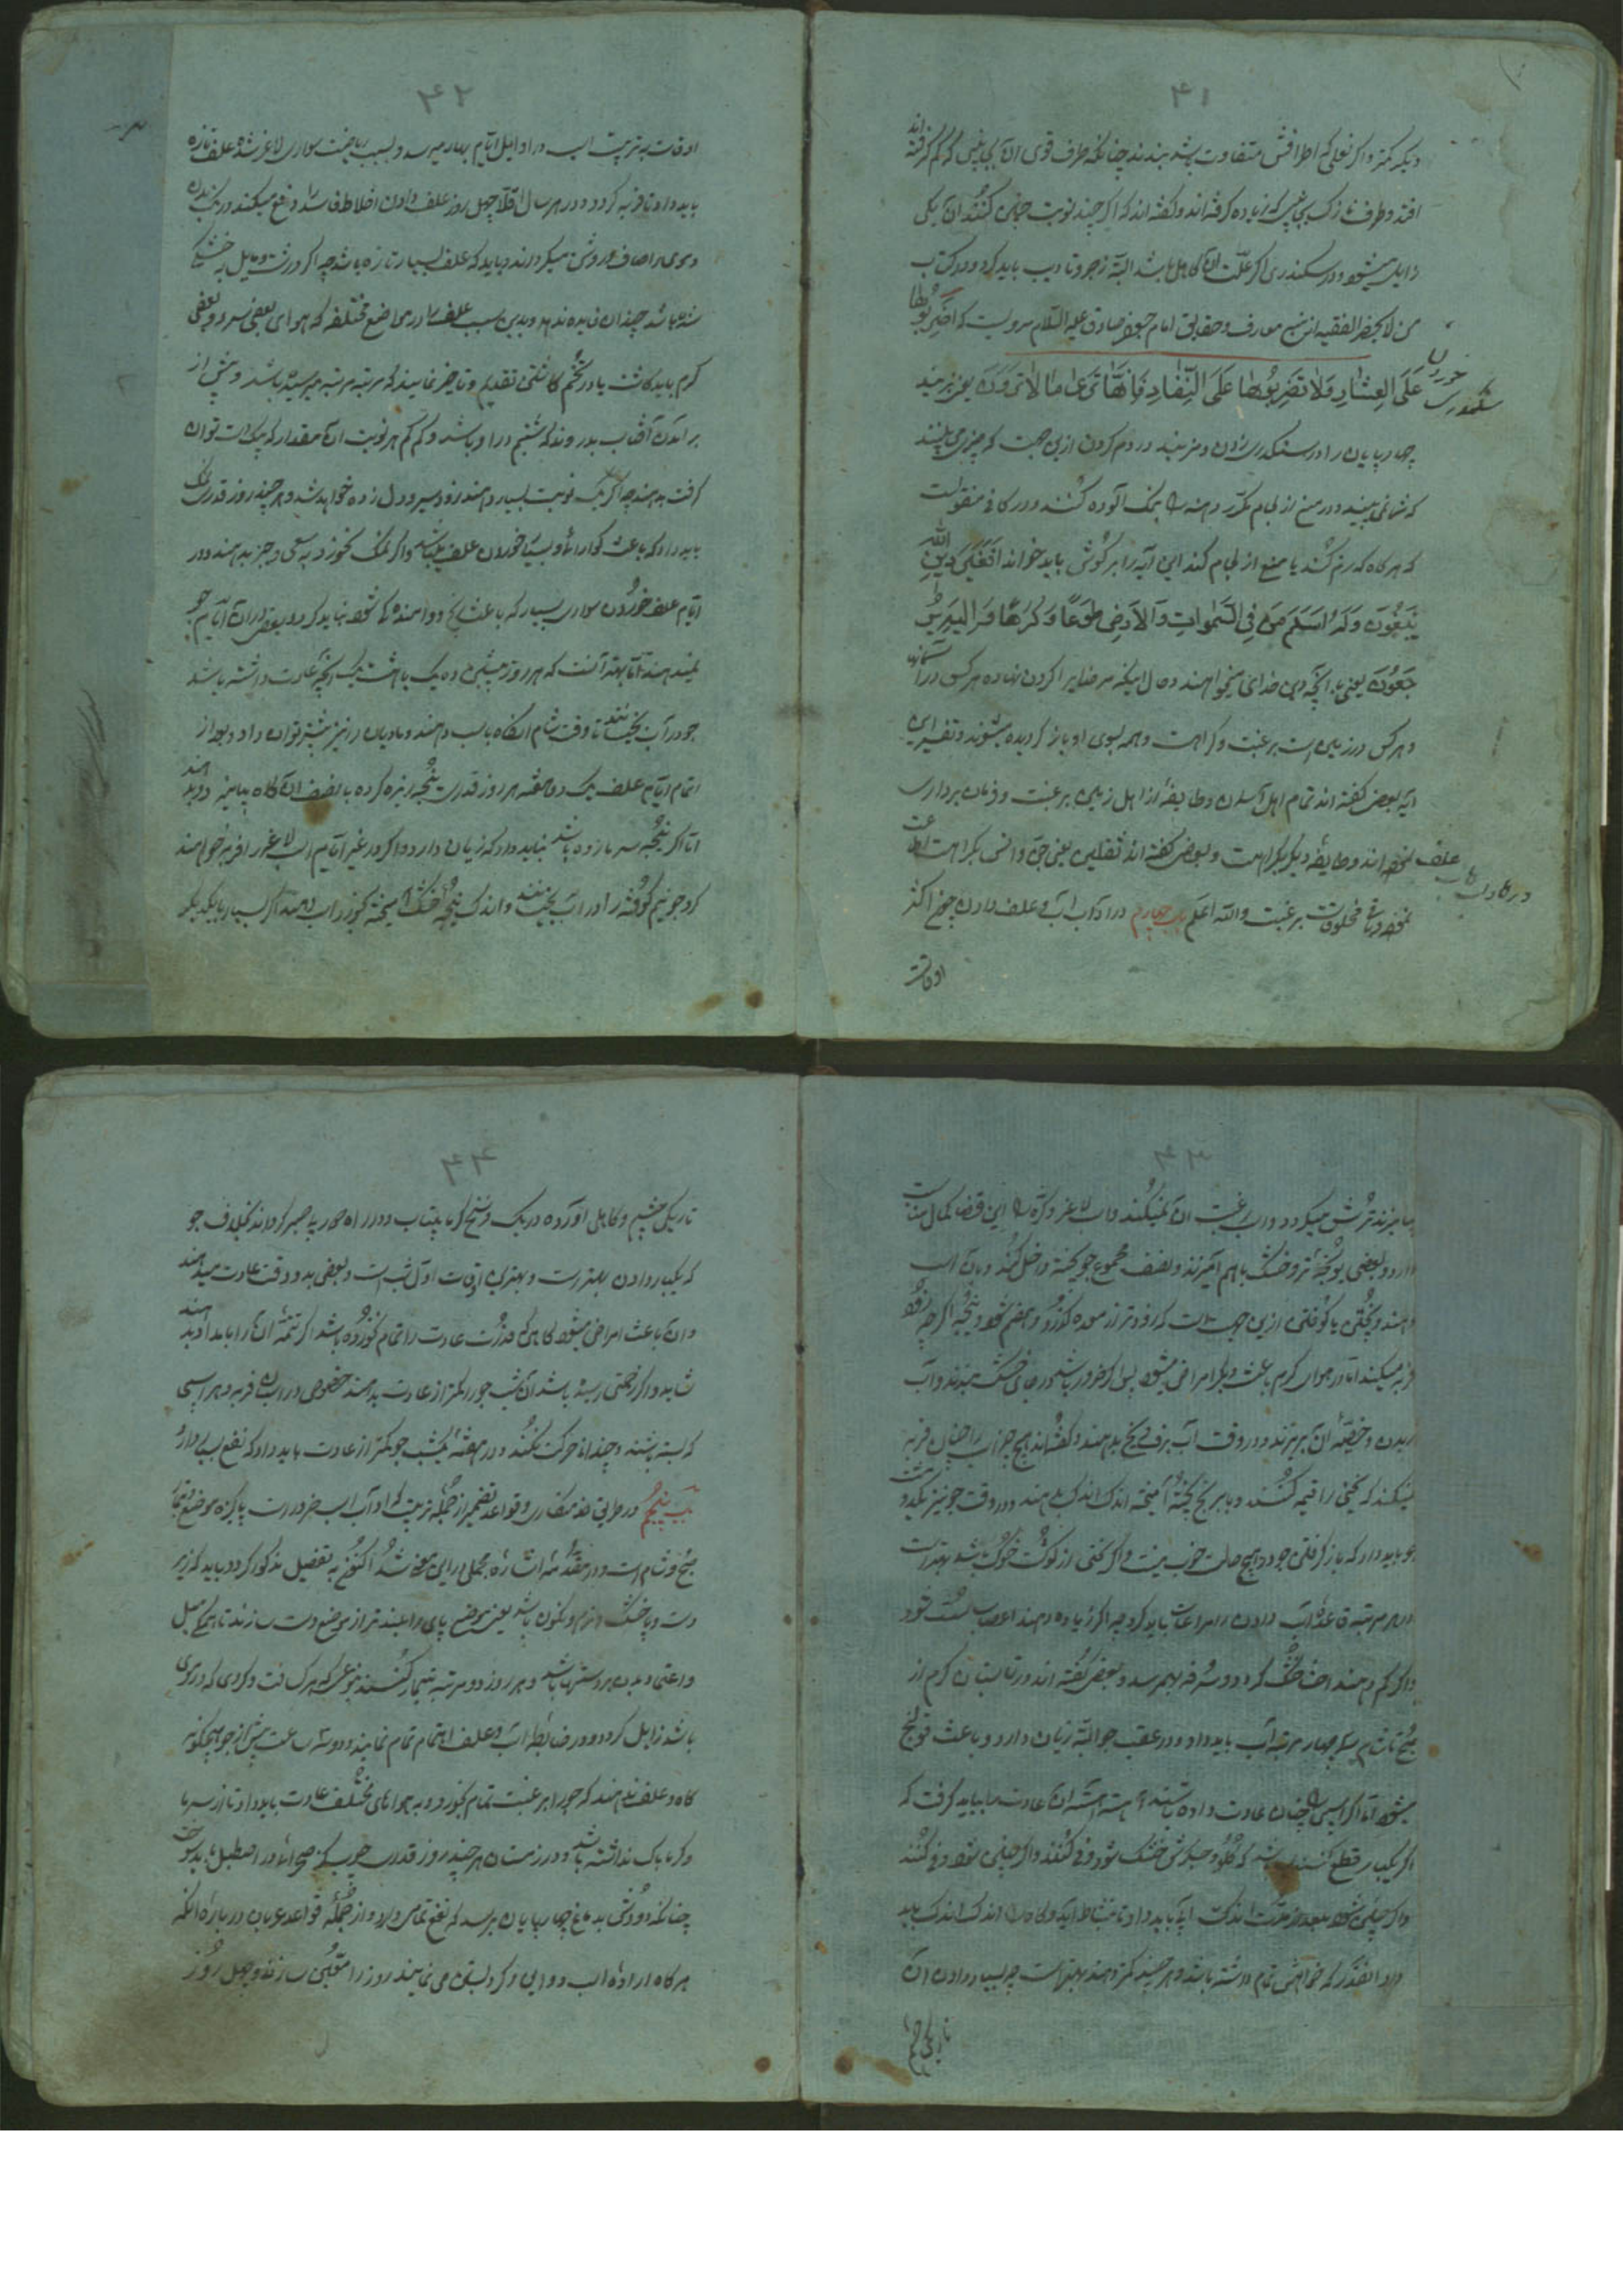 ۴۱
دیگر کمتر و اگر نعلی که اطرافش متفاوت باشد بندند چنانکه طرف قوی آن بجای کم گرفته اند
افتد و طرف نازک بجایی که زیاده گرفته‌اند و گفته‌اند که اگر چند نوبت چنین کنند آن یکی
زایل میشود و در سکندری اگر علت آن کاهلی باشد البته زجر و تادیب باید کرد و در کتاب
من لا یحضر الفقیه از معارف و حقایق امام جعفر صادق علیه السلام مرویست که اضربوها
عَلَی العِثارِ وَلا تَضرِبُوها عَلَی النِّفارِ فَاِنَّها تَری ما لا تَرَونَ یعنی بزنید
سکندری خوردن
چهارپایان را در سکندری زدن و مزنید در رم کردن از این جهت که چیزی می‌بینند
که شما نمی‌بینید و در منع از لجام مکرر دهنه را بنمک آلوده کنند و در کافی منقولست
که هرگاه که رم کند یا منع از لجام کند این آیه را بر گوش باید خواند اَفَغَیرَ دینِ اللّه
یَبغُونَ وَلَهُ اَسلَمَ مَن فِی السَّمواتِ وَالاَرضِ طَوعًا وَکَرهًا وَاِلَیهِ یُر
جَعُونَ یعنی آیا بجز دین خدای میخواهند و حال اینکه مر خدایرا گردن نهاده هر کس در آسمانها
و هر کس در زمین است برغبت و کراهت و همه بسوی او باز گردیده میشوند و تفسیر این
آیه بعضی گفته‌اند تمام اهل آسمان و طایفهٔ از اهل زمین برغبت و فرمان برداری
و طایفهٔ دیگر بکراهت و بعضی گفته‌اند ثقلین یعنی جن و انس بکراهت اطاعت
در دادن علف
مخلوقات برغبت والله اعلم باب چهارم در آداب آب و علف دادن چون اکثر
اوقات
۴۲
اوقات تربیت اسب در اوایل ایام بهار میرسد و بسبب ریاضت سواری لاغر شده علف تازه
باید داد تا فربه گردد و در هر سال اقلا چهل روز علف دادن اخلاط فاسد را دفع میکند و رنگ بدن
و موی را صاف و روشن میگرداند و باید که علف بسیار تازه باشد چه اگر درشت و مایل به خشکی
شده باشد چندان فایده ندهد و بدین سبب علف را در مواضع مختلفه که هوای بعضی سرد و بعضی
گرم باشد باید کاشت یا در تخم کاشتن تقدیم و تاخیر نمایند که مرتبه مرتبه میرسیده باشد و پیش از
برآمدن آفتاب بدروند که شبنم در او باشد و کم کم هر نوبت آن مقدار که بیک دست توان
گرفت بدهند چه اگر یک نوبت بسیار دهند زود سیر و دل زده خواهد شد و هر چند روز قدری نمک
باید داد که باعث گوارائی و بسیار خوردن علف میباشد و اگر نمک نخورد به سعی و جبر بدهند و در
ایام علف خوردن سواری بسیار که باعث دوا مانده‌گی شود نباید کرد و بعضی در آن ایام جو
نمیدهند اما بهتر آنست که هر روز
جو در آب بخیسانند تا وقت شام آنگاه باسب دهند و مادیان را نیز بیشتر توان داد و بعد از
اتمام ایام علف یک دو هفته هر روز قدری یونجه ریزه کرده با نصف آن کاه بیامیزند و بدهند
اما اگر یونجه سرما زده باشد نباید داد که زیان دارد و اگر در غیر ایام اسب لاغر را فربه خواهند
کرد جو نیم کوفته را در آب بخیسانند و اندک یونجهٔ خشک آمیخته بخورد اسب دهند اگر بسیار با یکدیگر
۴۳
بیامیزند ترش میگردد و اسب رغبت آن نمیکند و اسب لاغر و کره را این قصد کمال مناسبت
دارد و بعضی یونجهٔ تر و خشک با هم آمیزند و نصف مجموع جو پخته داخل کنند و باسب
دهند و پختن یا کوفتن از این جهت است که زودتر از معده گذرد و هضم شود و یونجه اگر چه زود
فربه میکند اما در هوای گرم باعث دیگر امراض میشود پس اگر ضرور باشد در جای خشک ببندند و آب
بدهند و گفته‌اند هیچ چیز اسب را چنان فربه
نمیکند که یخنی را قیمه کنند و با برنج پخته آمیخته اندک اندک بدهند و در وقت جو نیز
جو باید داد که باز گرفتن جو در هیچ حالت خوب نیست و اگر یخنی از گوشت خوک باشد بهتر است
و در هر مرتبه قاعدهٔ آب دادن را مراعات باید کرد چه اگر زیاده دهند اعصاب سست شود
و اگر کم دهند احشا خشک گردد و سرفه بهم رسد و بعضی گفته‌اند در تابستان گرم از
صبح تا شام سه چهار مرتبه آب باید داد و در عقب جو البته زیان دارد و باعث قولنج
میشود اما اگر اسبی را چنان عادت داده باشند آهسته آهسته آن عادت را باید گرفت که
اگر یکبار قطع کنند گلو و جگرش خشک شود
اندک آب باید داد تا نشاط آید و کاه را اندک اندک باید
داد آنقدر که خواهش تمام داشته باشد و هر چند کمتر دهند بهتر است چه بسیار دادن آن
تاریکی چشم
۴۴
تاریکی چشم و کاهلی آورده در یک فرسخ بیتاب و در راه بی صبر گرداند بخلاف جو
که یکبار دادن بهتر است و بهترین اوقات اول شب است و بعضی بدو وقت عادت میدهند
و آن باعث امراض میشود گاهی که قدر عادت را تمام نخورده باشد اگر تتمهٔ آن را بامداد بدهند
شاید و اگر زحمتی رسیده باشد آن شب جو را کمتر از عادت بدهند خصوص در اسب فربه و هر اسبی
که بسته باشند و چندان حرکت نکند و در هر هفته یکشب جو کمتر از عادت باید داد که نفع بسیار دارد
باب پنجم در طریق خدمتکاری و قواعد تضمیر از جمله تربیت که او آب اسب ضرور است پاکیزه موضع و تیمار
صبح و شام است و در مقدمه اشاره مجملی بر این معنی شد اکنون به تفصیل مذکور گردد باید که زیر
دست و پا خشک و نرم و یکسان باشد یعنی موضع پای را بلندتر از موضع دست سازند تا هیکل میل
و اعتماد بدن بر دستها باشد و هر روز دو مرتبه تیمار کنند بنوعی که چرک و گردی که در موی
باشد زایل گردد و در ضابطهٔ آب و علف اهتمام تمام نمایند و دو سه ساعت پیش از جو هیچگونه
کاه و علف ندهند که جو را برغبت تمام بخورد و به هواهای مختلف عادت باید داد تا از سرما
و گرما باک نداشته باشد و در زمستان هر چند روز قدری چوب گز صحرائی در اصطبل باید سوخت
چنانکه دودش به دماغ چهارپایان برسد که نفع تمامی دارد و از جملهٔ قواعد عربان در باره آنکه
هرگاه ارادهٔ اسب دوانی و گرو بستن می‌نمایند روز را سازند و چهل روز